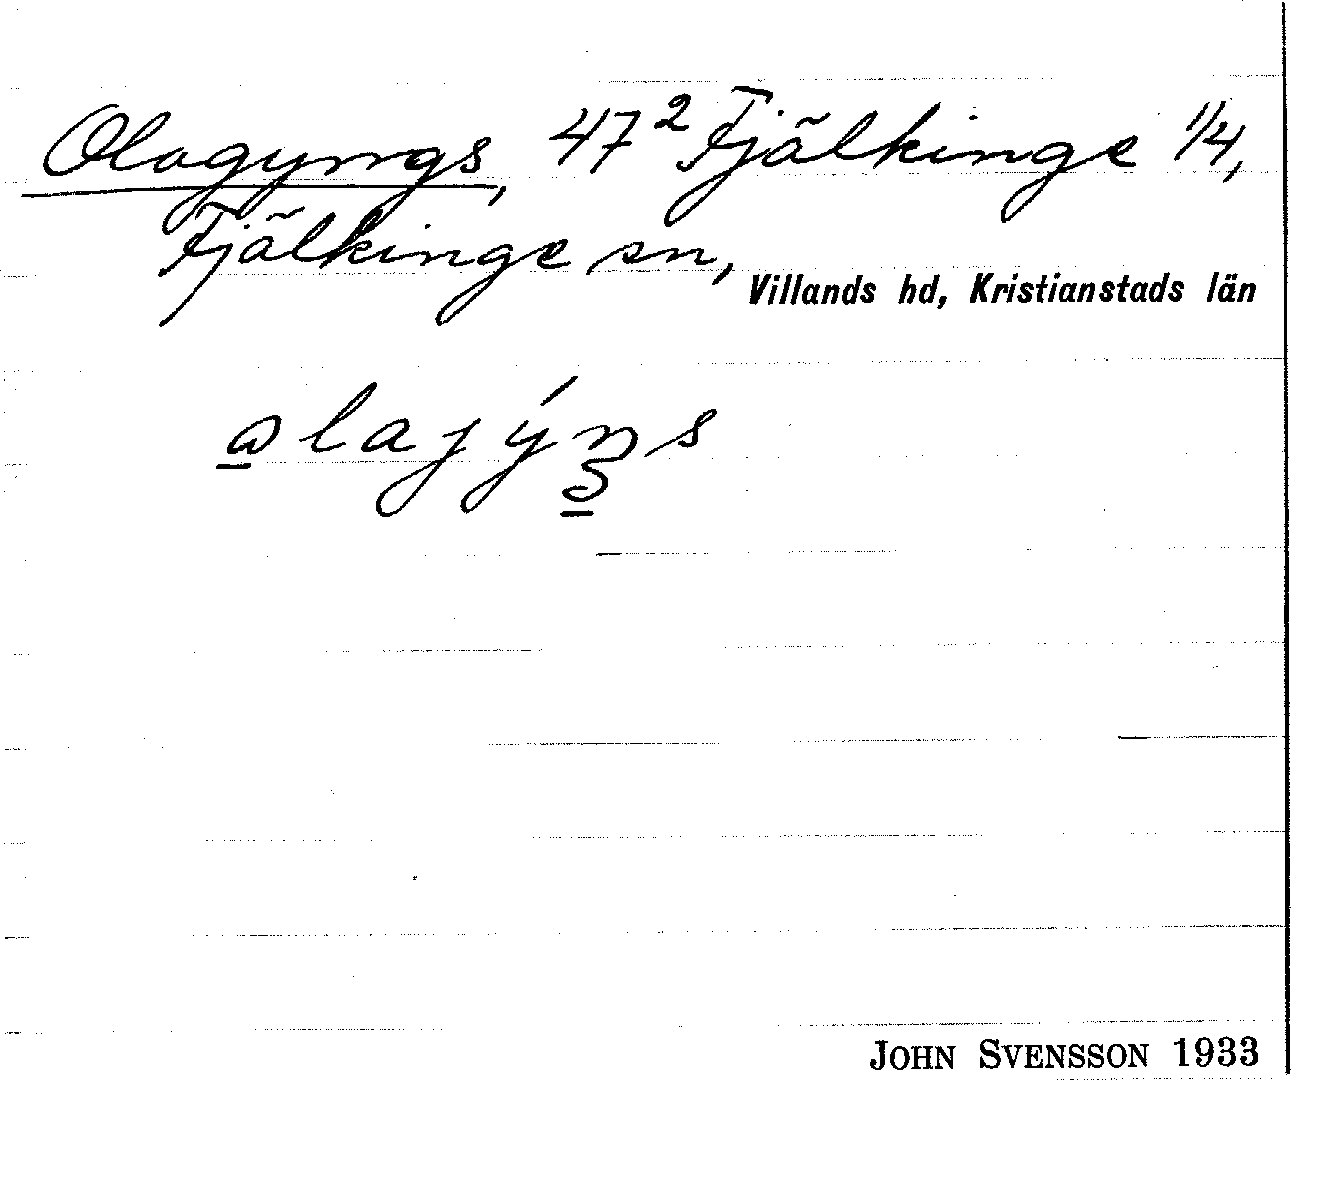 Olagyngs, 47² Fjälkinge 1/4,
Fjälkinge sn,
Villands hd, Kristianstads län
JOHN SVENSSON 1933